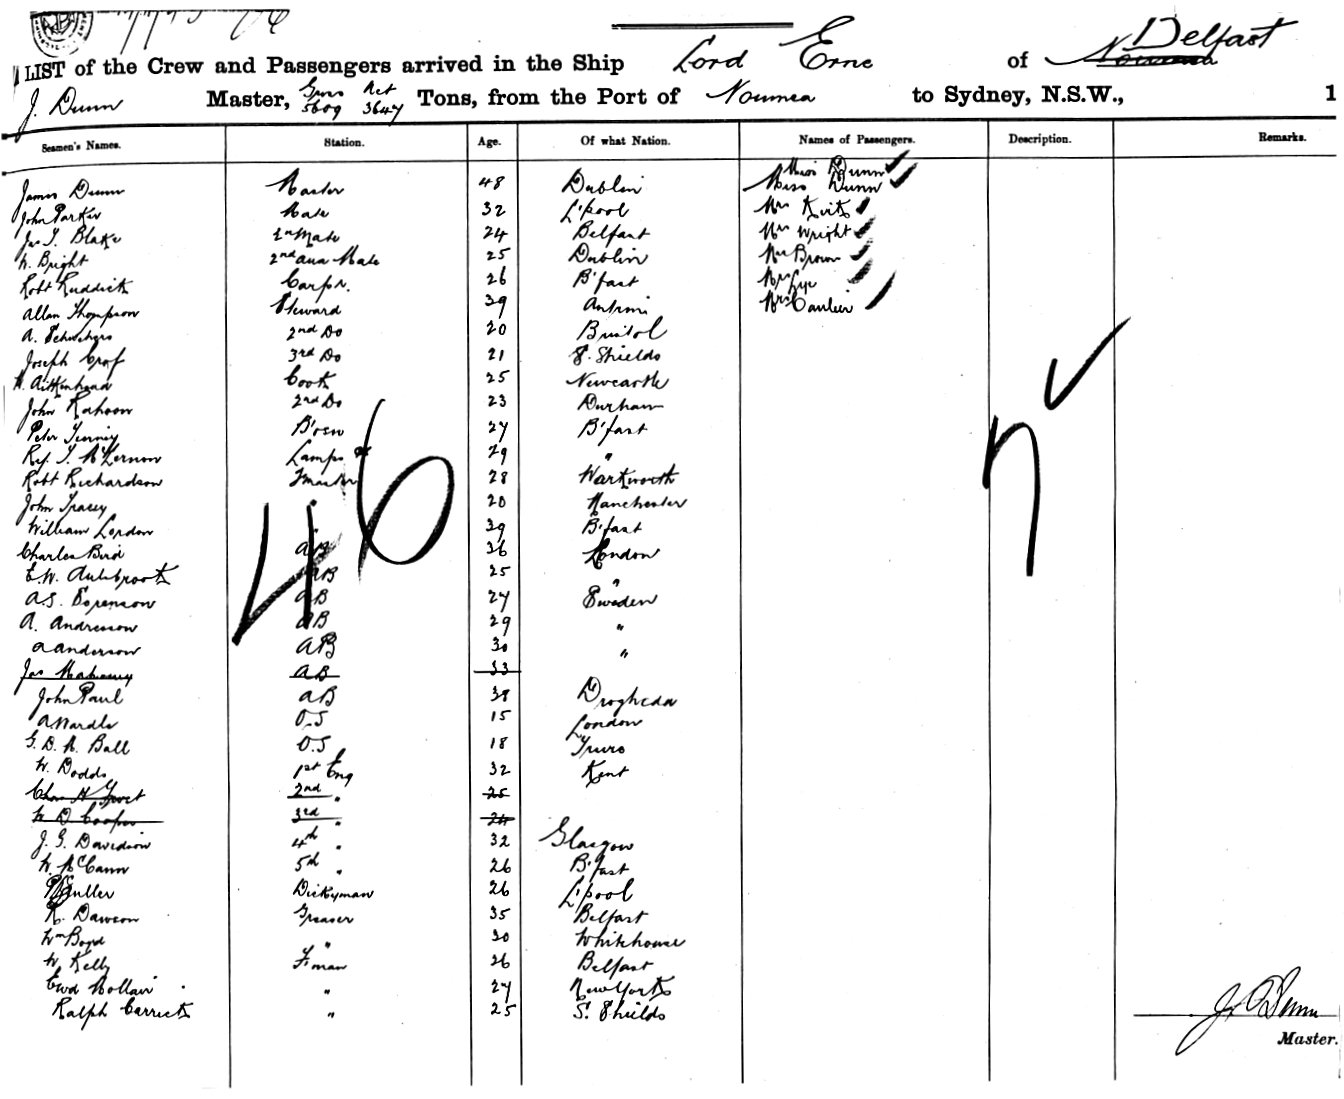 Delfast
LIST of the Crew and Passengers arrived in the Ship Lord Erne of Noumea
J. Dunn Master, Gross 5609 Net 3647 Tons, from the Port of Noumea to Sydney, N.S.W., 1
Seamen's Names. Station. Age. Of what Nation. Names of Passengers. Description. Remarks.
Miss Dunn
James Dunn Master 48 Dublin Miss Dunn
John Parker Mate 32 L'pool Mrs
Jas T. Blake 1st Mate 24 Belfast Mrs Wright
W. Bright 2nd Mate 25 Dublin Mrs Brown
Robt Ruddick Carpr. 26 B'fast Mrs
Allan Thompson Steward 39 Antrim Mrs
A. 2nd Do 20 Bristol
Joseph 3rd Do 21 S. Shields
Aitkenhead Cook 25 Newcastle
John Rahoon 2nd Do 23 Durham
Peter Tierney B'osn 27 B'fast
T. McKernon Lamps 29 "
Robt Richardson 28 Warkworth
John Tracey " 20 Manchester
William London " 39 B'fast
Charles Bird AB 36 London
E.W. AB 25 "
A.S. Sorenson AB 27 Sweden
A. Andresson AB 29 "
A Anderson AB 30 "
Jas Mahoney AB 33
John Paul AB 38 Drogheda
A Wardle O.S 15 London
G. D. A. Ball O.S 18 Truro
W. Dodds 1st Eng 32 Kent
Chas H 2nd " 25
W D Cooper 3rd " 24
J. G. Davidson 4th " 32 Glasgow
W. McCann 5th " 26 B'fast
Dickyman 26 L'pool
R. Dawson Greaser 35 Belfast
Wm Boyd " 30 Whitehouse
W. Kelly F'man 26 Belfast
Ewd " 27 New York
Ralph Carrick " 25 S. Shields
46
7
J. Dunn
Master.